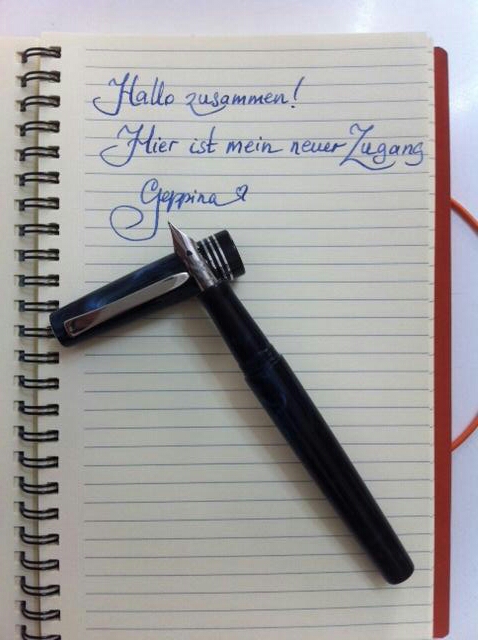 Hallo zusammen!
Hier ist mein neuer Zugang
Geppina